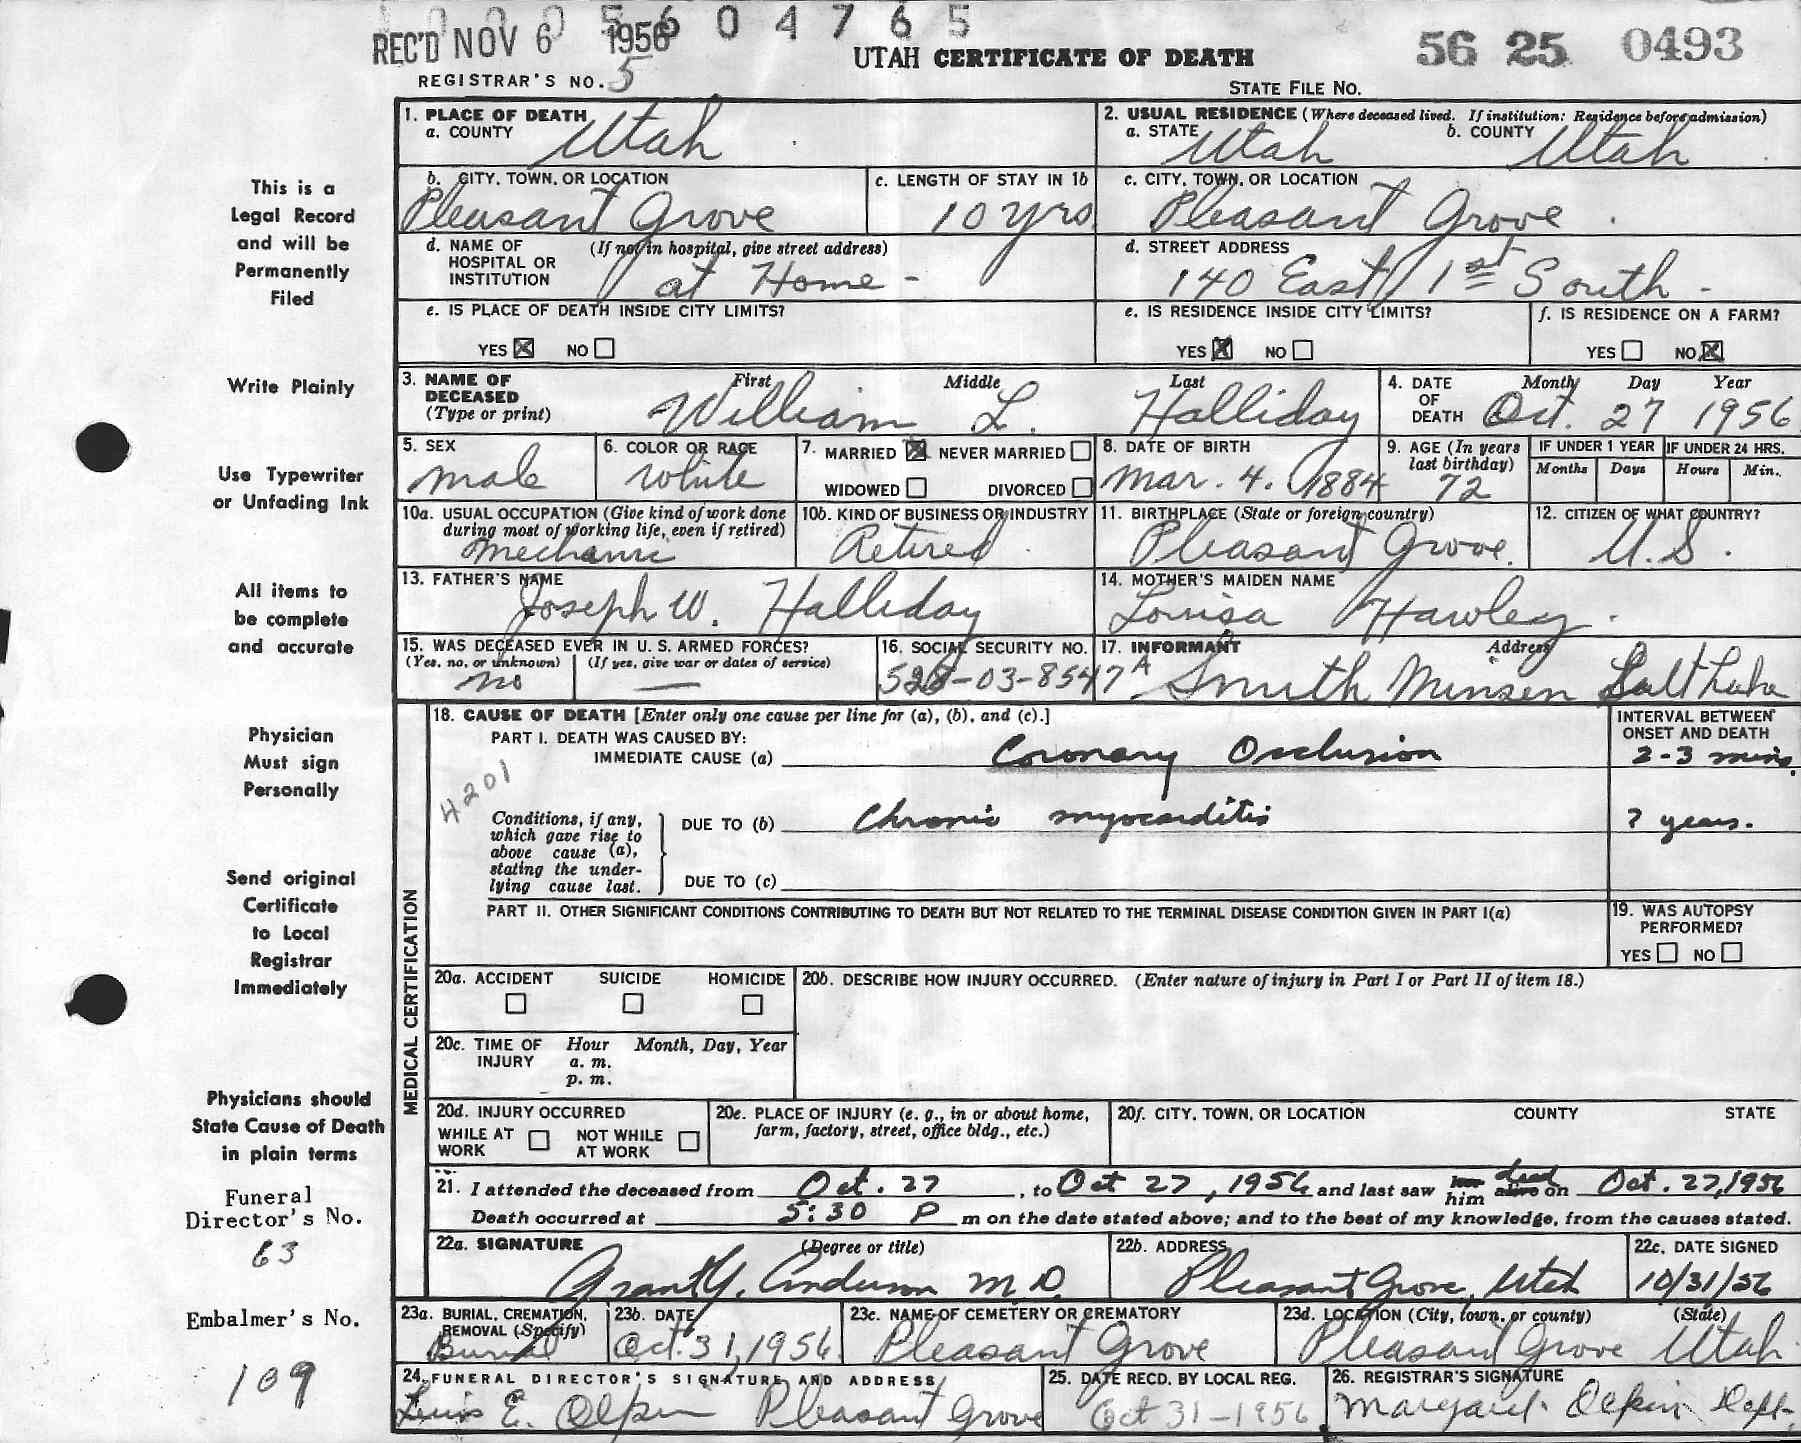 0005604765
REC'D NOV 6 1956
UTAH CERTIFICATE OF DEATH
56 25 0493
REGISTRAR'S NO. 5
STATE FILE NO.
1. PLACE OF DEATH
a. COUNTY Utah
2. USUAL RESIDENCE (Where deceased lived. If institution: Residence before admission)
a. STATE Utah b. COUNTY Utah
b. CITY, TOWN, OR LOCATION Pleasant Grove
c. LENGTH OF STAY IN 1b 10 yrs
c. CITY, TOWN, OR LOCATION Pleasant Grove
d. NAME OF HOSPITAL OR INSTITUTION (If not in hospital, give street address) at Home -
d. STREET ADDRESS 140 East 1st South -
e. IS PLACE OF DEATH INSIDE CITY LIMITS?
YES NO
e. IS RESIDENCE INSIDE CITY LIMITS?
YES NO
f. IS RESIDENCE ON A FARM?
YES NO
3. NAME OF DECEASED (Type or print)
First Middle Last
William L. Halliday
4. DATE OF DEATH Month Day Year
Oct. 27 1956
5. SEX male
6. COLOR OR RACE white
7. MARRIED NEVER MARRIED
WIDOWED DIVORCED
8. DATE OF BIRTH Mar. 4. 1884
9. AGE (In years last birthday) 72
IF UNDER 1 YEAR Months Days
IF UNDER 24 HRS. Hours Min.
10a. USUAL OCCUPATION (Give kind of work done during most of working life, even if retired) Mechanic
10b. KIND OF BUSINESS OR INDUSTRY Retired
11. BIRTHPLACE (State or foreign country) Pleasant Grove.
12. CITIZEN OF WHAT COUNTRY? U.S.
13. FATHER'S NAME Joseph W. Halliday
14. MOTHER'S MAIDEN NAME Louisa Hawley
15. WAS DECEASED EVER IN U. S. ARMED FORCES?
(Yes, no, or unknown) (If yes, give war or dates of service)
no —
16. SOCIAL SECURITY NO. 528-03-8547A
17. INFORMANT Address
Salt Lake
18. CAUSE OF DEATH [Enter only one cause per line for (a), (b), and (c).]
PART I. DEATH WAS CAUSED BY:
IMMEDIATE CAUSE (a) Coronary Occlusion
INTERVAL BETWEEN ONSET AND DEATH
2-3 mins.
4201
Conditions, if any, which gave rise to above cause (a), stating the underlying cause last.
DUE TO (b) Chronic myocarditis
? years.
DUE TO (c)
PART II. OTHER SIGNIFICANT CONDITIONS CONTRIBUTING TO DEATH BUT NOT RELATED TO THE TERMINAL DISEASE CONDITION GIVEN IN PART I(a)
19. WAS AUTOPSY PERFORMED?
YES NO
20a. ACCIDENT SUICIDE HOMICIDE
20b. DESCRIBE HOW INJURY OCCURRED. (Enter nature of injury in Part I or Part II of item 18.)
20c. TIME OF INJURY Hour Month, Day, Year
a. m.
p. m.
20d. INJURY OCCURRED
WHILE AT WORK NOT WHILE AT WORK
20e. PLACE OF INJURY (e. g., in or about home, farm, factory, street, office bldg., etc.)
20f. CITY, TOWN, OR LOCATION COUNTY STATE
21. I attended the deceased from Oct. 27, to Oct 27, 1956 and last saw her him alive dead on Oct. 27, 1956
Death occurred at 5:30 P m on the date stated above; and to the best of my knowledge, from the causes stated.
22a. SIGNATURE (Degree or title)
Grant Y. Anderson M.D.
22b. ADDRESS Pleasant Grove, Utah
22c. DATE SIGNED 10/31/56
23a. BURIAL, CREMATION, REMOVAL (Specify) Burial
23b. DATE Oct. 31, 1956.
23c. NAME OF CEMETERY OR CREMATORY Pleasant Grove
23d. LOCATION (City, town, or county) (State)
Pleasant Grove Utah
24. FUNERAL DIRECTOR'S SIGNATURE AND ADDRESS
E. Olpin Pleasant Grove
25. DATE RECD. BY LOCAL REG. Oct 31-1956
26. REGISTRAR'S SIGNATURE
Margaret Olpin Dept.
MEDICAL CERTIFICATION
This is a
Legal Record
and will be
Permanently
Filed
Write Plainly
Use Typewriter
or Unfading Ink
All items to
be complete
and accurate
Physician
Must sign
Personally
Send original
Certificate
to Local
Registrar
Immediately
Physicians should
State Cause of Death
in plain terms
Funeral
Director's No.
63
Embalmer's No.
109